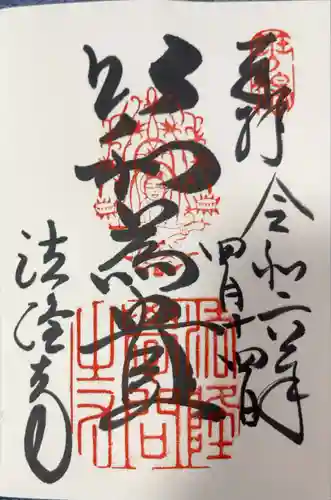 奉拝
令和六年
四月十四日
以和為貴
法隆寺